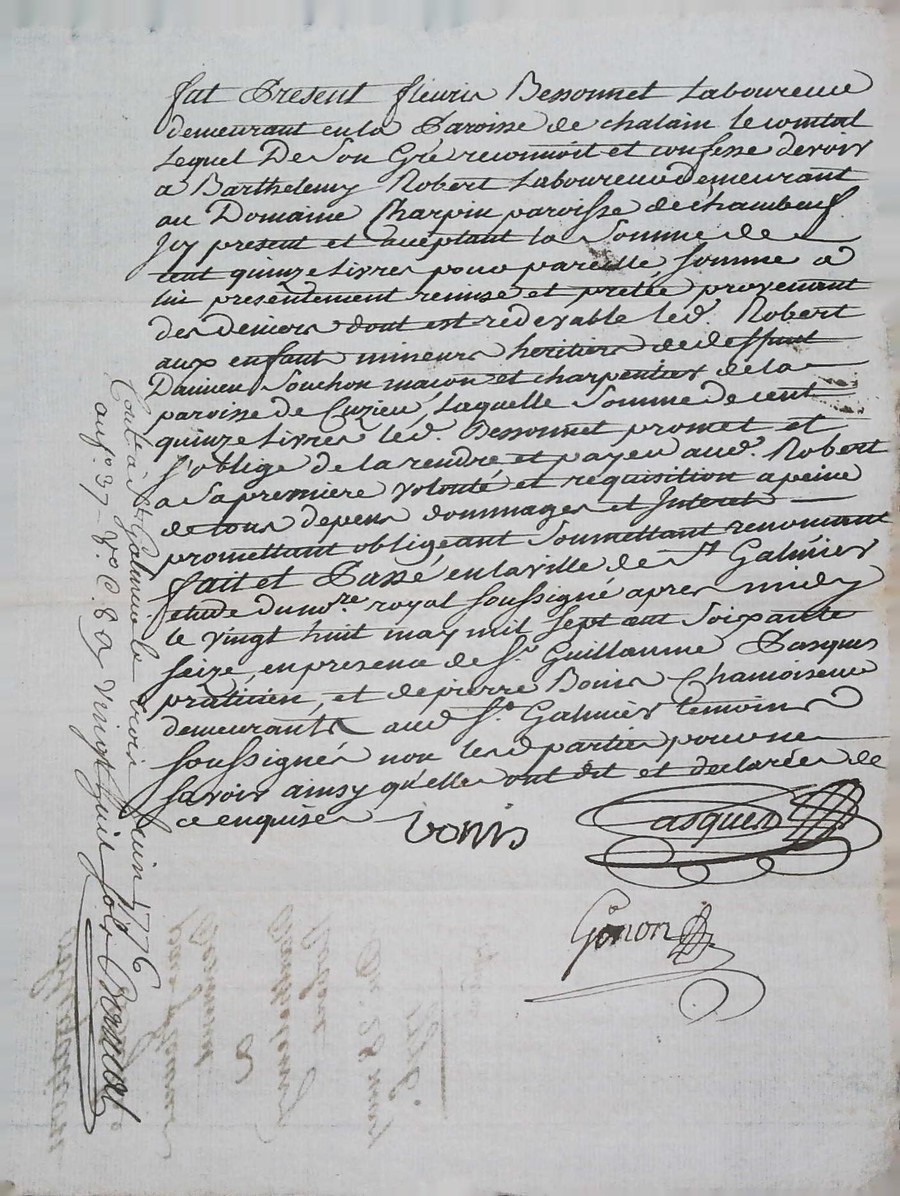 fut Présent fleuris Bessonnet Laboureur
demeurant en la Paroisse de chalain le comtal
Lequel De Son Gré reconnoit et confesse devoir
a Barthelemy Robert Laboureur demeurant
au Domaine Charpin paroisse de chambeuf
Icy present et aceptant la Somme de
cent quinze Livres pour pareille somme a
lui presentement remise et pretée provenant
des deniers dont est redevable led. Robert
aux enfant mineurs heritiers de deffunt
Damien Souchon macon et charpentier de la
paroisse de Cuzieu, Laquelle Somme de cent
quinze Livres led. Bessonnet promet et
s'oblige de la rendre et payer aud. Robert
a Sa premiere volonté et requisition a peine
de tous depens dommages et Interets
promettant obligeant Soumettant renoncant
fait et Passé en la ville de St Galmier
etude du nore royal soussigné apres midy
le vingt huit may mil sept cent Soixante
seize, en presence de Sr Guillaume Pasques
praticien, et de pierre Bonis Chamoiseur
demeurants aud St Galmier temoins
soussignés non lesd parties pour ne
savoir ainsy qu'elles ont dit et declarées de
ce enquises
bonis
Pasques
Gonon
Conté à St Galmier le trois juin 1776
au fo. 37 vo C. 8 vingt huit sols